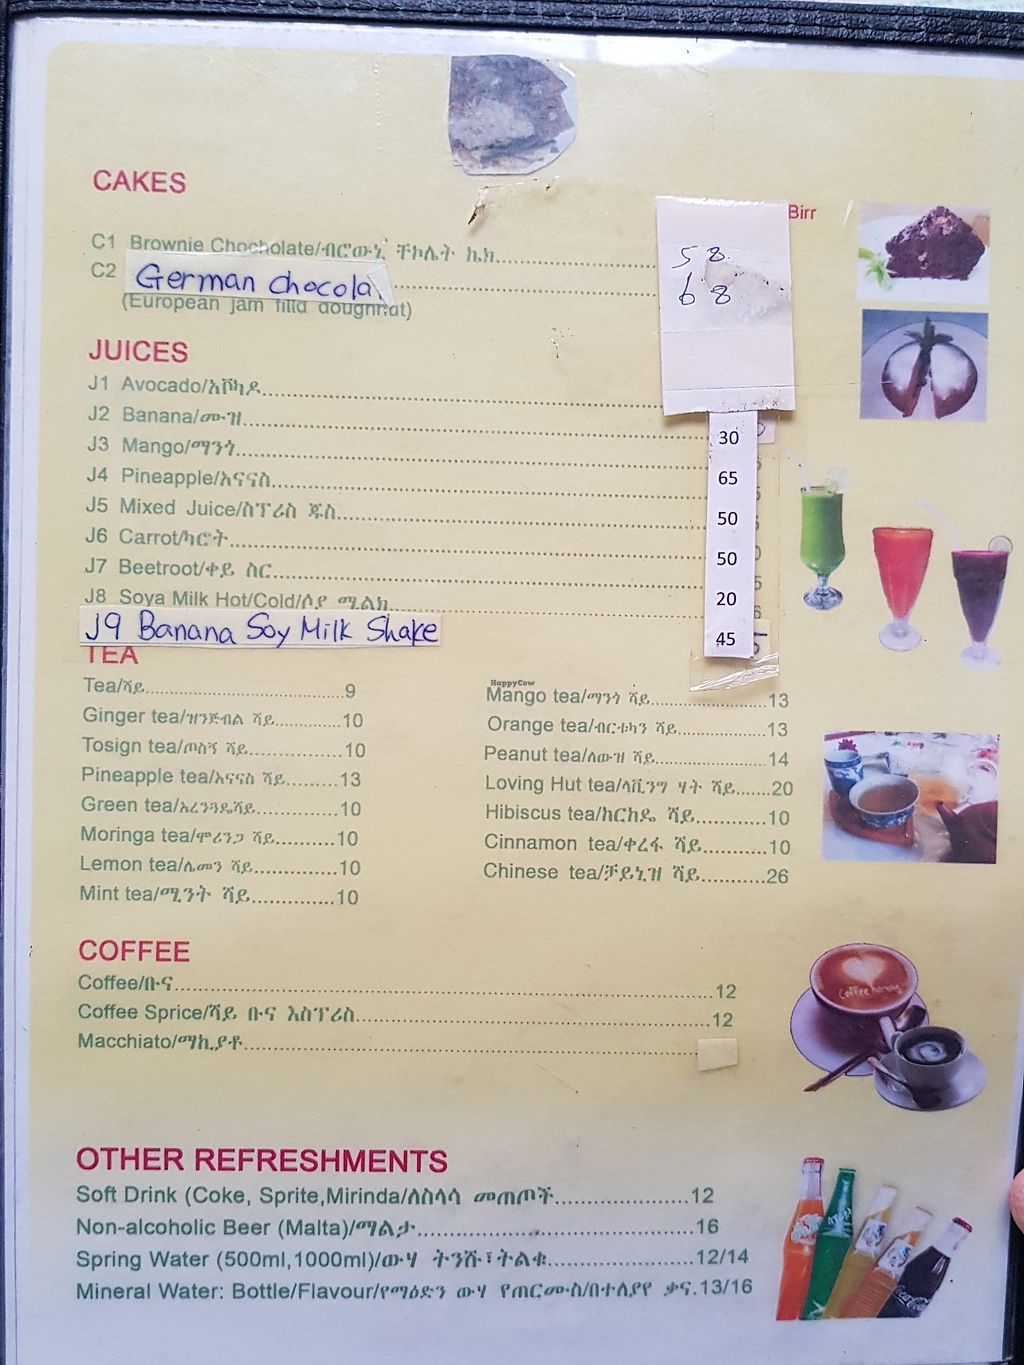 CAKES
Birr
C1 Brownie Chocholate/ብሮውኒ ቸኮሌት ኬክ
58
C2 German Chocola
68
(European jam filld doughnut)
JUICES
J1 Avocado/አቮካዶ
J2 Banana/ሙዝ
30
J3 Mango/ማንጎ
65
J4 Pineapple/አናናስ
50
J5 Mixed Juice/ስፕሪስ ጁስ
50
J6 Carrot/ካሮት
20
J7 Beetroot/ቀይ ስር
45
J8 Soya Milk Hot/Cold/ሶያ ሚልክ
J9 Banana Soy Milk Shake
TEA
HappyCow
Tea/ሻይ 9
Ginger tea/ዝንጅብል ሻይ 10
Tosign tea/ጦስኝ ሻይ 10
Pineapple tea/አናናስ ሻይ 13
Green tea/አረንጓዴሻይ 10
Moringa tea/ሞሪንጋ ሻይ 10
Lemon tea/ሌመን ሻይ 10
Mint tea/ሚንት ሻይ 10
Mango tea/ማንጎ ሻይ 13
Orange tea/ብርቱካን ሻይ 13
Peanut tea/ለውዝ ሻይ 14
Loving Hut tea/ላቪንግ ሃት ሻይ 20
Hibiscus tea/ከርከዴ ሻይ 10
Cinnamon tea/ቀረፋ ሻይ 10
Chinese tea/ቻይኒዝ ሻይ 26
COFFEE
Coffee/ቡና 12
Coffee Sprice/ሻይ ቡና እስፕሪስ 12
Macchiato/ማኪያቶ
OTHER REFRESHMENTS
Soft Drink (Coke, Sprite,Mirinda/ለስላሳ መጠጦች 12
Non-alcoholic Beer (Malta)/ማልታ 16
Spring Water (500ml,1000ml)/ውሃ ትንሹ፣ትልቁ 12/14
Mineral Water: Bottle/Flavour/የማዕድን ውሃ የጠርሙስ/በተለያየ ቃና.13/16